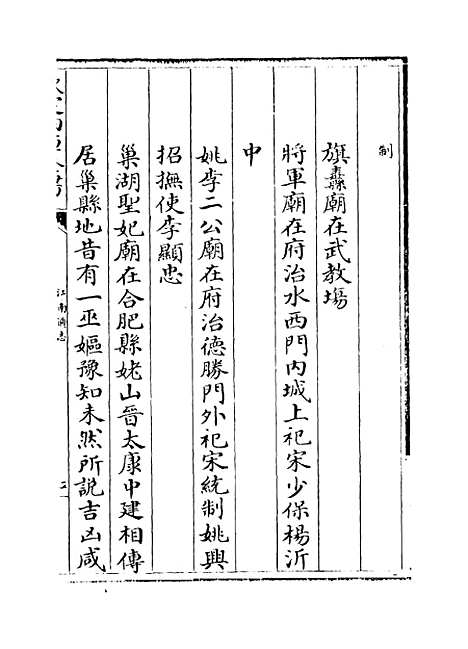 制
旗纛廟在武教塲
將軍廟在府治水西門内城上祀宋少保楊沂
中
姚李二公廟在府治德勝門外祀宋統制姚興
招撫使李顯忠
巢湖聖妃廟在合肥縣姥山晉太康中建相傳
居巢縣地昔有一巫嫗豫知未然所説吉凶咸
江南通志